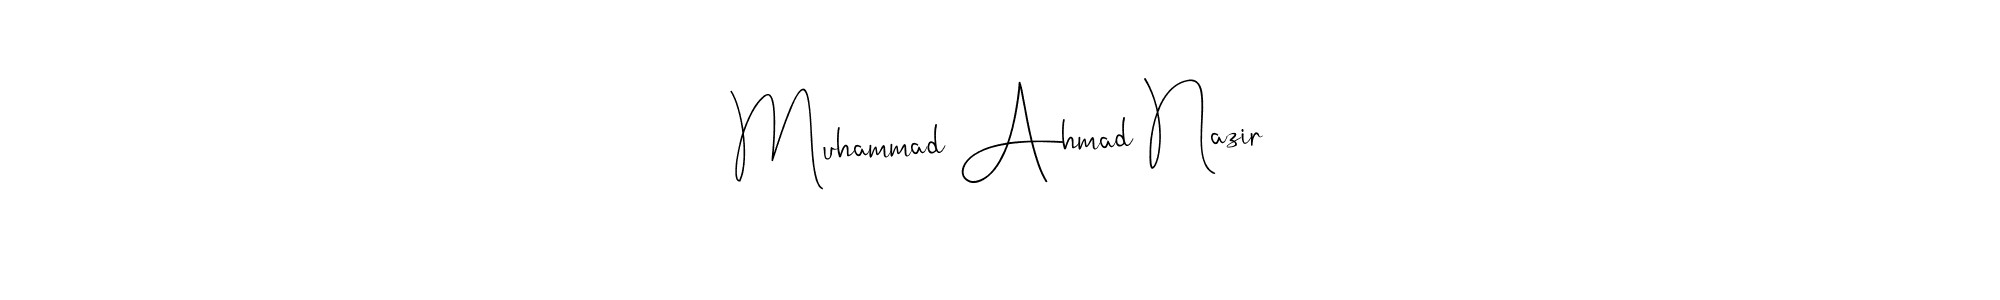 Muhammad Ahmad Nazir